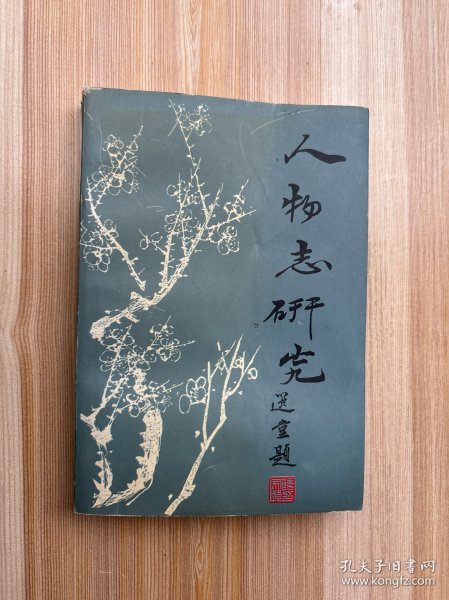 人物志研究
选堂题
孔夫子旧书网
www.kongfz.com